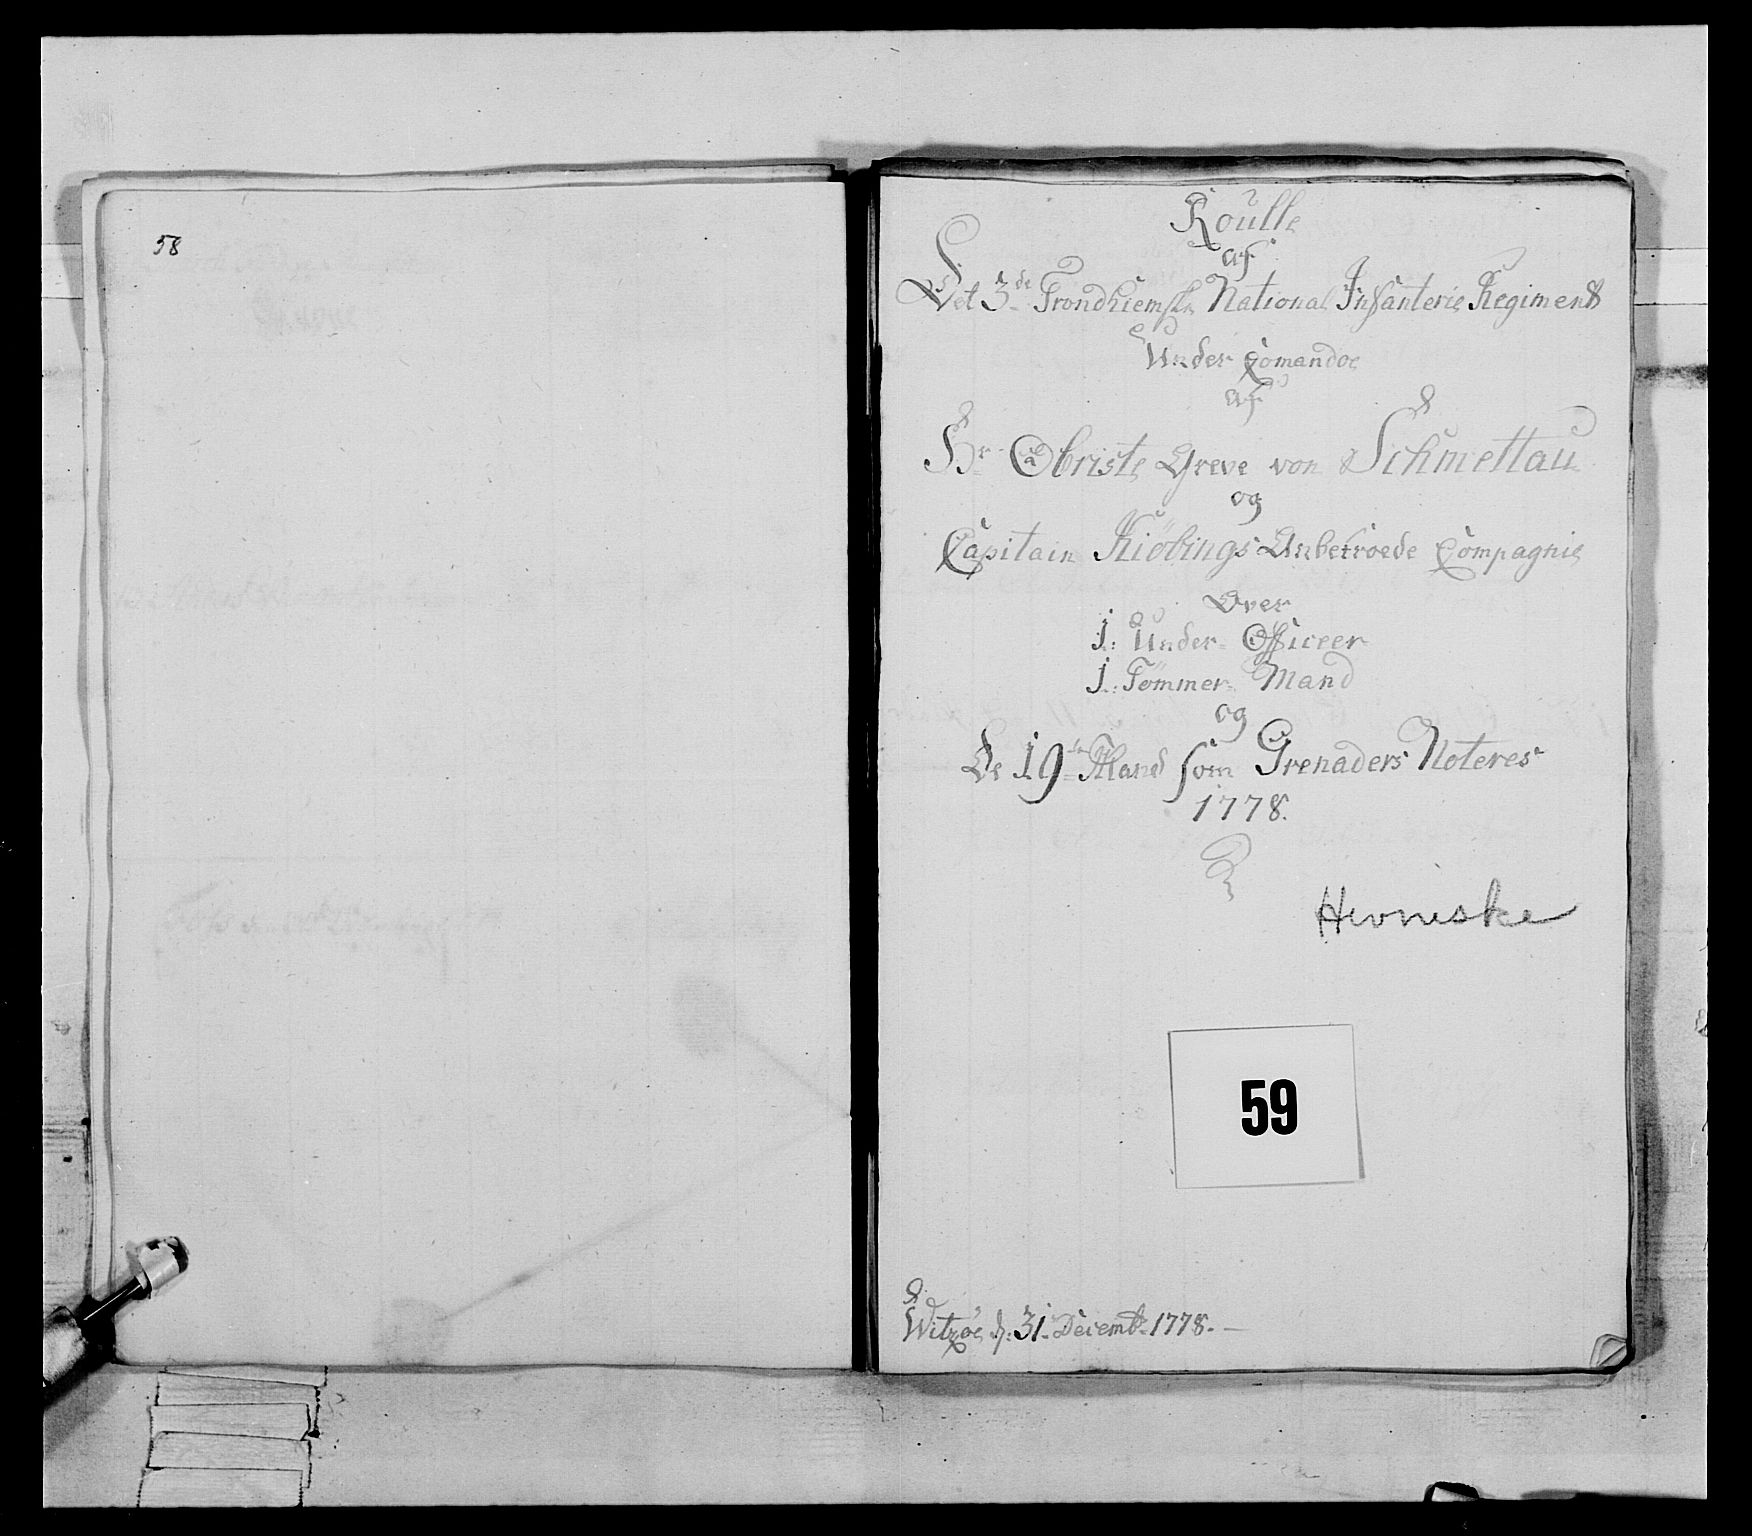 58
Roulle
af
Det 3de Trondhiemske National Infanterie Regiment
Under Comandoe
af
Hr Obriste Greve von Schmettau
og
Capitain Kiöbings Anbetroede Compagnie
Over
1: Under-Officeer
1: Tömmer-Mand
og
De 19 Mand som Grenaders Noteres
1778.
59
Witzøe d: 31 Decembr 1778.